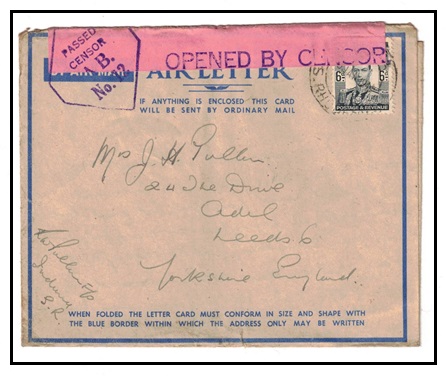 PASSED
CENSOR
A B.
No. 22
OPENED BY CENSOR.
AIR LETTER
IF ANYTHING IS ENCLOSED THIS CARD
WILL BE SENT BY ORDINARY MAIL
6D 6D
POSTAGE & REVENUE
S. RH
Mrs J. H. Pullein
24 The Drive
Adel
Leeds 6
Yorkshire England.
S.R
WHEN FOLDED THE LETTER CARD MUST CONFORM IN SIZE AND SHAPE WITH
THE BLUE BORDER WITHIN WHICH THE ADDRESS ONLY MAY BE WRITTEN